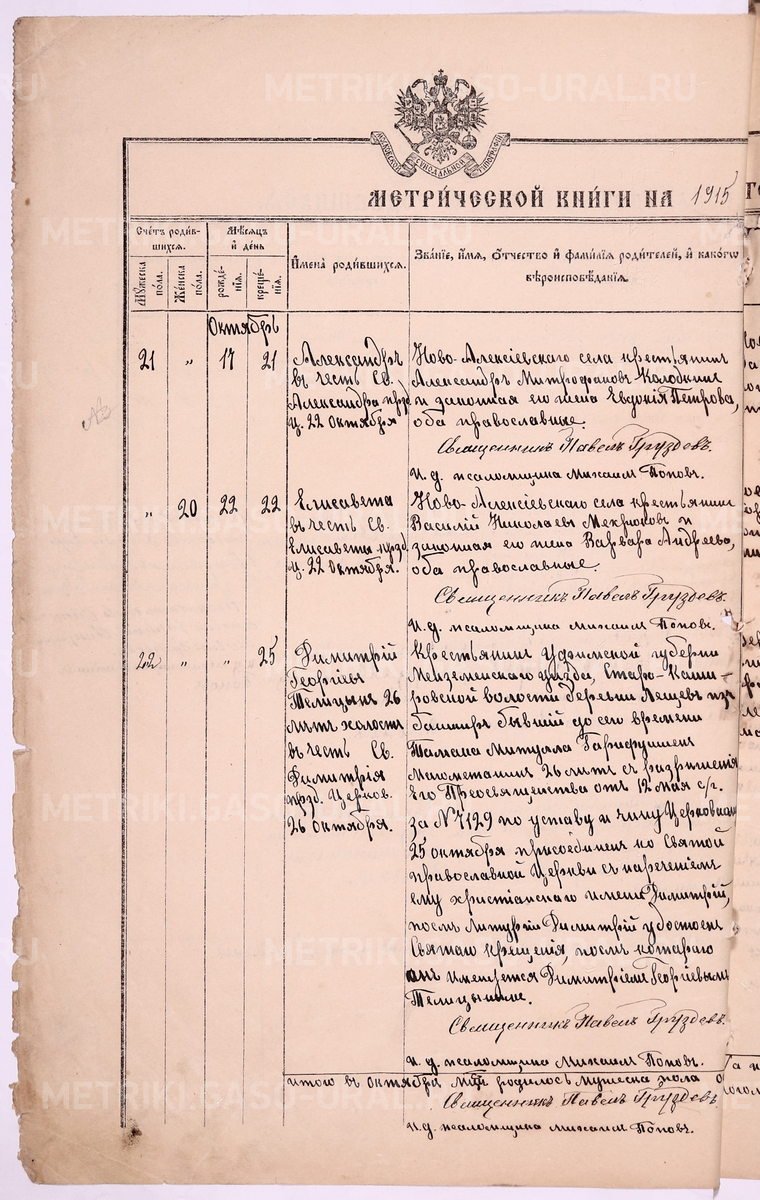 МОСКОВСКОЙ СѴНОДАЛЬНОЙ ТИПОГРАФІИ
МЕТРИ́ЧЕСКОЙ КНИ́ГИ НА 1915
Сче́тъ роди́вшихся.
Мѣ́сяцъ и́ де́нь
И҆мена̀ роди́вшихся.
Зва́нїе, и҆́мя, ѻ҆́тчество и҆ фами́лїѧ роди́телей, и҆ како́гѡ
вѣроисповѣ́данїѧ.
Му́жеска по́ла.
Же́нска по́ла.
рожде́нїѧ.
креще́нїѧ.
Октябрь
21 „ 17 21
Александръ
въ честь Св.
Александра прзд.
ц. 22 октября
Ново-Алексіевскаго села крестьянин
Александръ Митрофановъ Колобкинъ
и законная его жена Евдокія Петрова,
оба православные.
Священникъ Павелъ Груздевъ.
И. д. псаломщика Михаил Поповъ.
„ 20 22 22
Елисавета
въ честь Св.
Елисаветы прзд.
ц. 22 октября.
Ново-Алексіевскаго села крестьянин
Василій Николаевъ и
законная его жена Варвара Андреева,
оба православные.
Священникъ Павелъ Груздевъ.
И. д. псаломщика Михаил Поповъ.
22 „ „ 25
Димитрій
Георгіевъ
Телицынъ 26
лѣтъ холостъ
въ честь Св.
Димитрія
прзд. Церков.
26 октября.
Крестьянин Уфимской губерніи
Мензелинскаго уѣзда, Старо-Каши-
ровской волости деревни изъ
башкиръ бывшій до сего времени
Гарифуллин
Магометанинъ 26 лѣтъ съ разрѣшенія
Его Преосвященства отъ 12 мая с/г.
за № 7129 по уставу и чину Церковному
25 октября присоединенъ ко Святой
православной Церкви съ нареченіемъ
ему христіанскаго имени Димитрій,
послѣ Литургіи Димитрій удостоенъ
Святаго крещенія, послѣ котораго
онъ именуется Димитріемъ Георгіевымъ
Телицынымъ.
Священникъ Павелъ Груздевъ.
И. д. псаломщика Михаил Поповъ.
итого въ октябрѣ родилось мужеска пола
Священникъ Павелъ Груздевъ.
И. д. псаломщика Михаил Поповъ.
METRIKI.GASO-URAL.RU